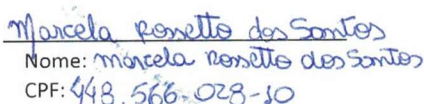 Marcela Rossetto dos Santos
Nome: Marcela Rossetto dos Santos
CPF: 448.566.028-10